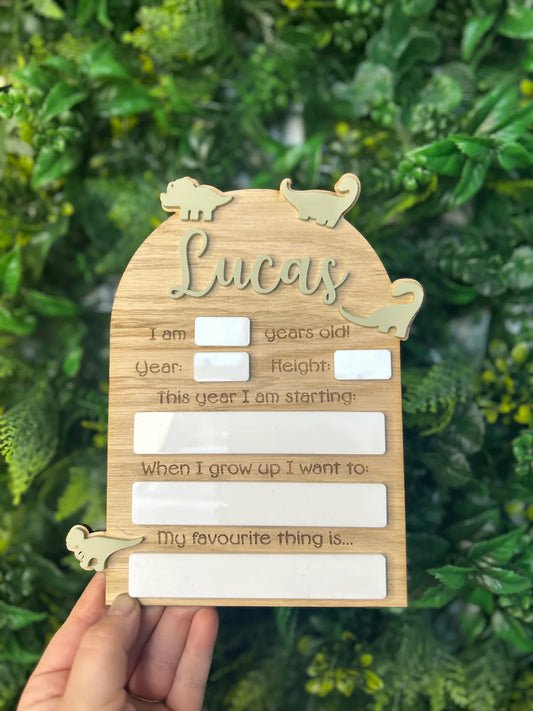 Lucas
I am years old!
Year: Height:
This year I am starting:
When I grow up I want to:
My favourite thing is...